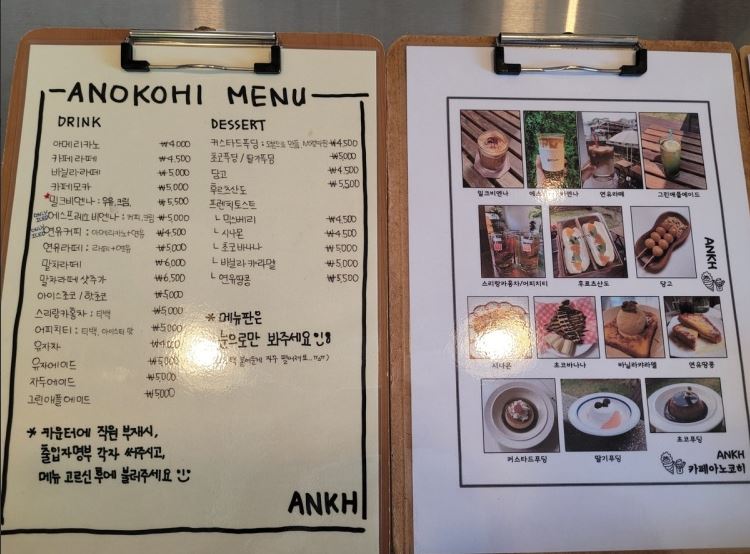 ANOKOHI MENU
DRINK
아메리카노 ₩4,000
카페라떼 ₩4,500
바닐라라떼 ₩5,000
카페모카 ₩5,000
*밀크비엔나: 우유,크림 ₩5,500
에스프레소비엔나: 커피,크림 ₩5,000
연유커피: 아메리카노+연유 ₩4,500
연유라떼: 라떼+연유 ₩5,000
말차라떼 ₩6,000
말차라떼 샷추가 ₩6,500
아이스초코/핫초코 ₩5,000
스리랑카홍차: 티백 ₩5,000
어피치티: 티백, 아이스티 맛 ₩5,000
유자차
유자에이드 ₩5,000
자두에이드 ₩5,000
그린애플에이드 ₩5,000
* 카운터에 직원 부재시,
출입자명부 각자 써주시고,
메뉴 고르신 후에 불러주세요
DESSERT
커스타드푸딩: ₩4,500
초코푸딩/딸기푸딩 ₩5,000
당고 ₩4,500
후르츠산도 ₩5,500
프렌치토스트
ㄴ믹스베리 ₩4,500
ㄴ시나몬 ₩4,500
ㄴ초코바나나 ₩5,000
ㄴ바닐라카라멜 ₩5,000
ㄴ연유땅콩 ₩5,500
* 메뉴판은
눈으로만 봐주세요
ANKH
밀크비엔나
연유라떼
그린애플에이드
스리랑카홍차/어피치티
후르츠산도
당고
ANKH
시나몬
초코바나나
바닐라캬라멜
연유땅콩
커스타드푸딩
딸기푸딩
초코푸딩
ANKH
카페아노코히